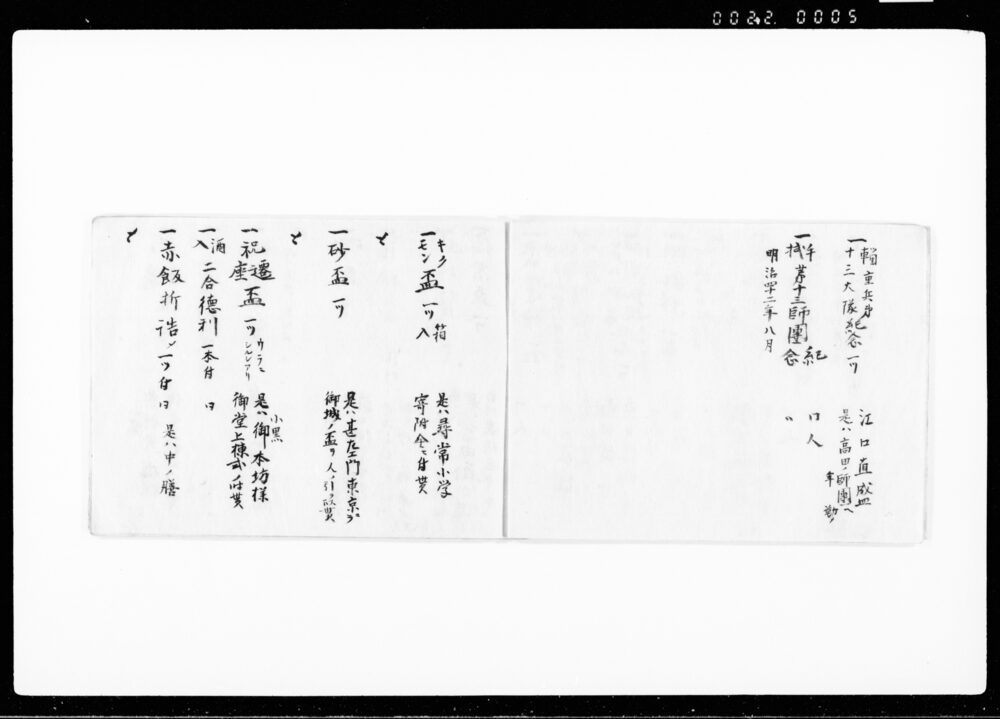 0022 0005
一輜重兵第
十三大隊紀念一ツ
江口直成
是ハ高田ノ師團ヘ
奉勤ノ
一弐千
第十三師團紀念
口人
明治四十二年八月
〃
一キク
モン盃一ツ箱入
是ハ尋常小学
寄附金ニ付貰
〆
一砂盃一ツ
是ハ甚左エ門東京デ
御城ノ盃ヲ人ノ引ク故貰
〆
一祝遷座盃一ツ
ウラニ
シルシアリ
小黒
是ハ御本坊様
御堂上棟式ノ付貰
一酒入二合徳利一本付
口
一赤飯折詰〆一ツ付口
是ハ中ノ膳
〆